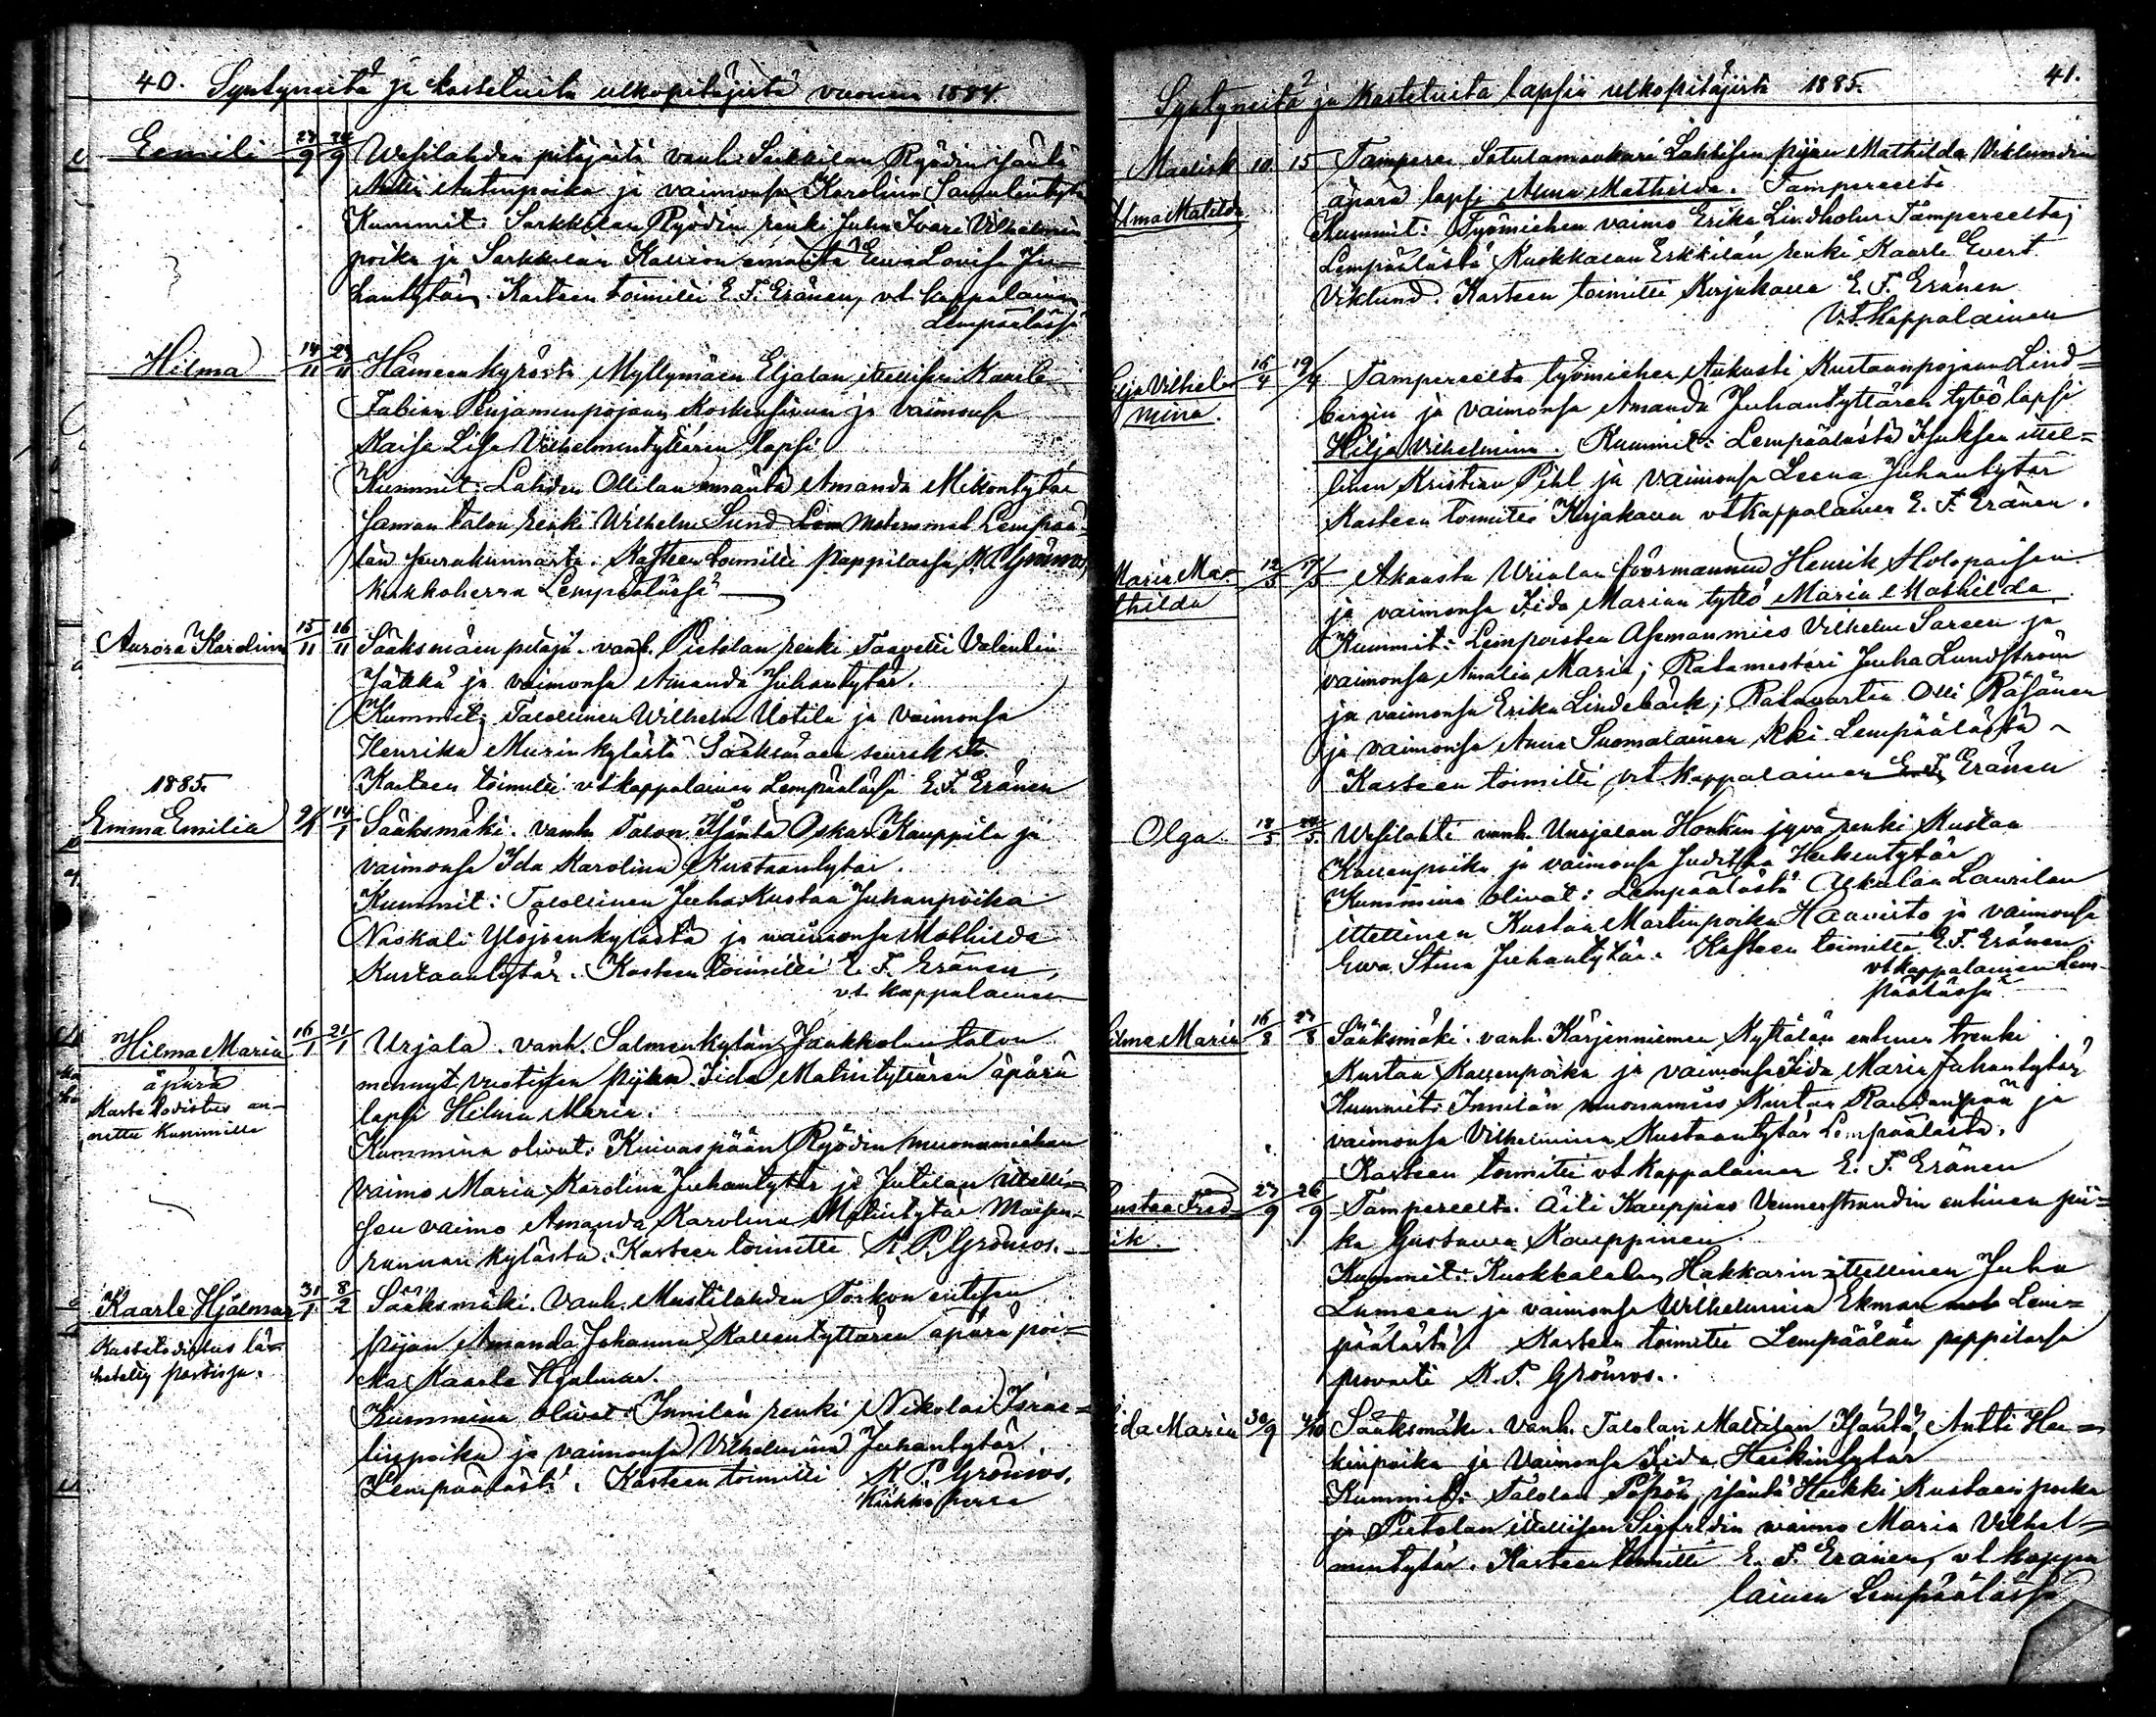 40. Syntyneitä ja kastetuita ulkopitäjistä vuonna 1884.
Eemili 23/9 24/9 Wesilahden pitäjästä vanh. Sarkkilan Ryödin isäntä
Antinpoika ja vaimonsa Karolina
Kummit: Sarkkilan Ryödin renki Juha Ivari Vilhelmin
poika ja Sarkkilan emäntä Eeva Lovisa Ju-
hantytär. Kasteen toimitti E. F. Eränen, vt. kappalainen
Lempäälässä
Hilma 14/11 23/11 Hämeenkyröstä Myllymäen Eljalan itellisen Kaarle
Fabian Penjaminpojan Koskensivun ja vaimonsa
Maija Lisa Vilhelmintyttären lapsi
Kummit: Lahden Ollilan emäntä Amanda Mikontytär
saman talon renki Wilhelm Sund Lem molemmat Lempää-
län seurakunnasta. Kasteen toimitti pappilassa K. P. Grönros
kirkkoherra Lempäälässä
Aurora Karolina 15/11 16/11 Sääksmäen pitäjä. vanh. Pietolan renki Taavetti Valentin
Jäkkä ja vaimonsa Amanda Juhantytär.
Kummit: Talollinen Wilhelm Uotila ja vaimonsa
Henrika Murinkylästä Sääksmäen
Kasteen toimitti vt kappalainen Lempäälässä E. F. Eränen
1885.
Emma Emilia 9/1 14/1 Sääksmäki. vanh. Talon Isäntä Oskar Kauppila ja
vaimonsa Ida Karolina Kustaantytär.
Kummit: Talollinen Juha Kustaa Juhanpoika
Naskali Ylöjoenkylästä ja vaimonsa Mathilda
Kustaantytär. Kasteen toimitti E. F. Eränen,
vt. kappalainen
Hilma Maria 16/1 21/1 Urjala. vanh. Salmenkylän Jaakkolan talon
äpärä mennyt vuotisen piian Iida Matintyttären äpärä
Kastetodistus an- lapsi Hilma Maria.
nettu kummille
Kummina olivat: Kuivaspään Ryödin muonamiehen
vaimo Maria Karolina Juhantytär ja Jutilan itelli-
sen vaimo Amanda Karolina Matintytär Moisen-
rannan kylästä. Kasteen toimitti K. P. Grönros.
Kaarle Hjalmar 31/1 8/2 Sääksmäki. Vanh. Mustilahden Torkon entisen
Kastetodistus lä- piian Amanda Johanna Kallentyttären äpärä poi-
hetetty postissa. ka Kaarle Hjalmar.
Kummina olivat: Innilän renki Nikolai Israe-
linpoika ja vaimonsa Vilhelmina Juhantytär.
Lempäälästä. Kasteen toimitti K. P. Grönros.
Kirkkoherra
Syntyneitä ja kastetuita lapsia ulkopitäjistä 1885. 41.
10 15 Tampere Lahtisen piian Mathilda Viklundin
Alma Matilda äpärä lapsi Alma Mathilda. Tampereelta
Kummit: Työmiehen vaimo Erika Lindholm Tampereelta;
Lempäälästä Kuokkalan Erkkilän renki Kaarle Evert
Viklund. Kasteen toimitti Kirjakassa E. F. Eränen
V.t. kappalainen
Hilja Vilhel- 16/4 19/4 Tampereelta työmiehen Aukusti Kustaanpojan Lind-
mina. bergin ja vaimonsa Amanda Juhantyttären tyttö lapsi
Hilja Vilhelmina. Kummit: Lempäälästä itel-
linen Kristian Pihl ja vaimonsa Leena Juhantytär
Kasteen toimitti Kirjakassa vt kappalainen E. F. Eränen.
Maria Ma- 12/5 17/5 Akaasta Urialan föörmannin Henrik Holopaisen
thilda ja vaimonsa Iida Marian tyttö Maria Mathilda
Kummit: Lempoisten Asemanmies Vilhelm Saren ja
vaimonsa Amalia Maria; Ratamestari Juha Lundström
ja vaimonsa Erika Lindebäck; Ratavartia Olli Räsänen
ja vaimonsa Anna Suomalainen kki Lempäälästä
Kasteen toimitti vt. kappalainen E. F. Eränen
Olga 18/5 24/5 Wesilahti vanh. Honkin jyvä renki Kustaa
Kallenpoika ja vaimonsa Juditha Heikintytär
Kummina olivat: Lempäälästä Alkulan Laurilan
itellinen Kustaa Martinpoika Haavisto ja vaimonsa
Eeva Stina Juhantytär. Kasteen toimitti E. F. Eränen
vt kappalainen Lem-
päälässä
Hilma Maria 16/8 23/8 Sääksmäki. vanh. Kärjenniemen Kyttälän entinen renki
Kustaa Kallenpoika ja vaimonsa Iida Maria Juhantytär
Kummit: Innilän muonamies Kustaa Raudanpää ja
vaimonsa Vilhelmina Kustaantytär Lempäälästä.
Kasteen toimitti vt kappalainen E. F. Eränen
Kustaa Fred- 23/9 26/9 Tampereelta. Äiti Kauppias Vennerstrandin entinen pii-
rik. ka Gustaava Kauppinen.
Kummit: Kuokkalalan Hakkarin itellinen Juha
Lumeen ja vaimonsa Wilhelmina Ekman Lem-
päälästä. Kasteen toimitti Lempäälän pappilassa
provasti K. P. Grönros.
Iida Maria 30/9 4/10 Sääksmäki. Vanh. Talolan Mattilan Isäntä Antti Hei-
kinpoika ja vaimonsa Iida Heikintytär
Kummit: Talolan isäntä Heikki Kustaanpoika
ja Pietolan itellisen Sigfridin vaimo Maria Vilhel-
mintytär. Kasteen toimitti E. F. Eränen, vt kappa
lainen Lempäälässä